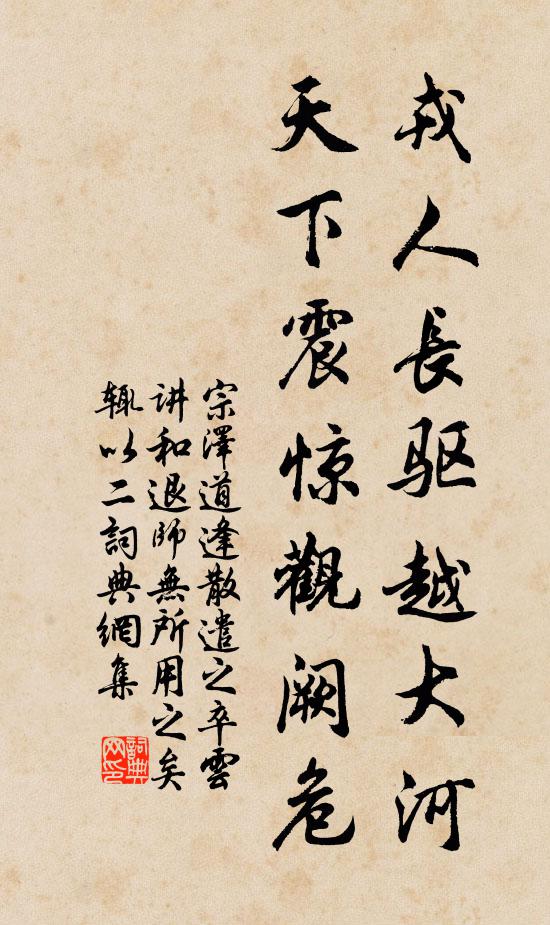 戎人長驱越大河
天下震惊觀阙危
宗澤道逢散遣之卒雲
讲和退師無所用之矣
輒以二詞典網集
詞典網印